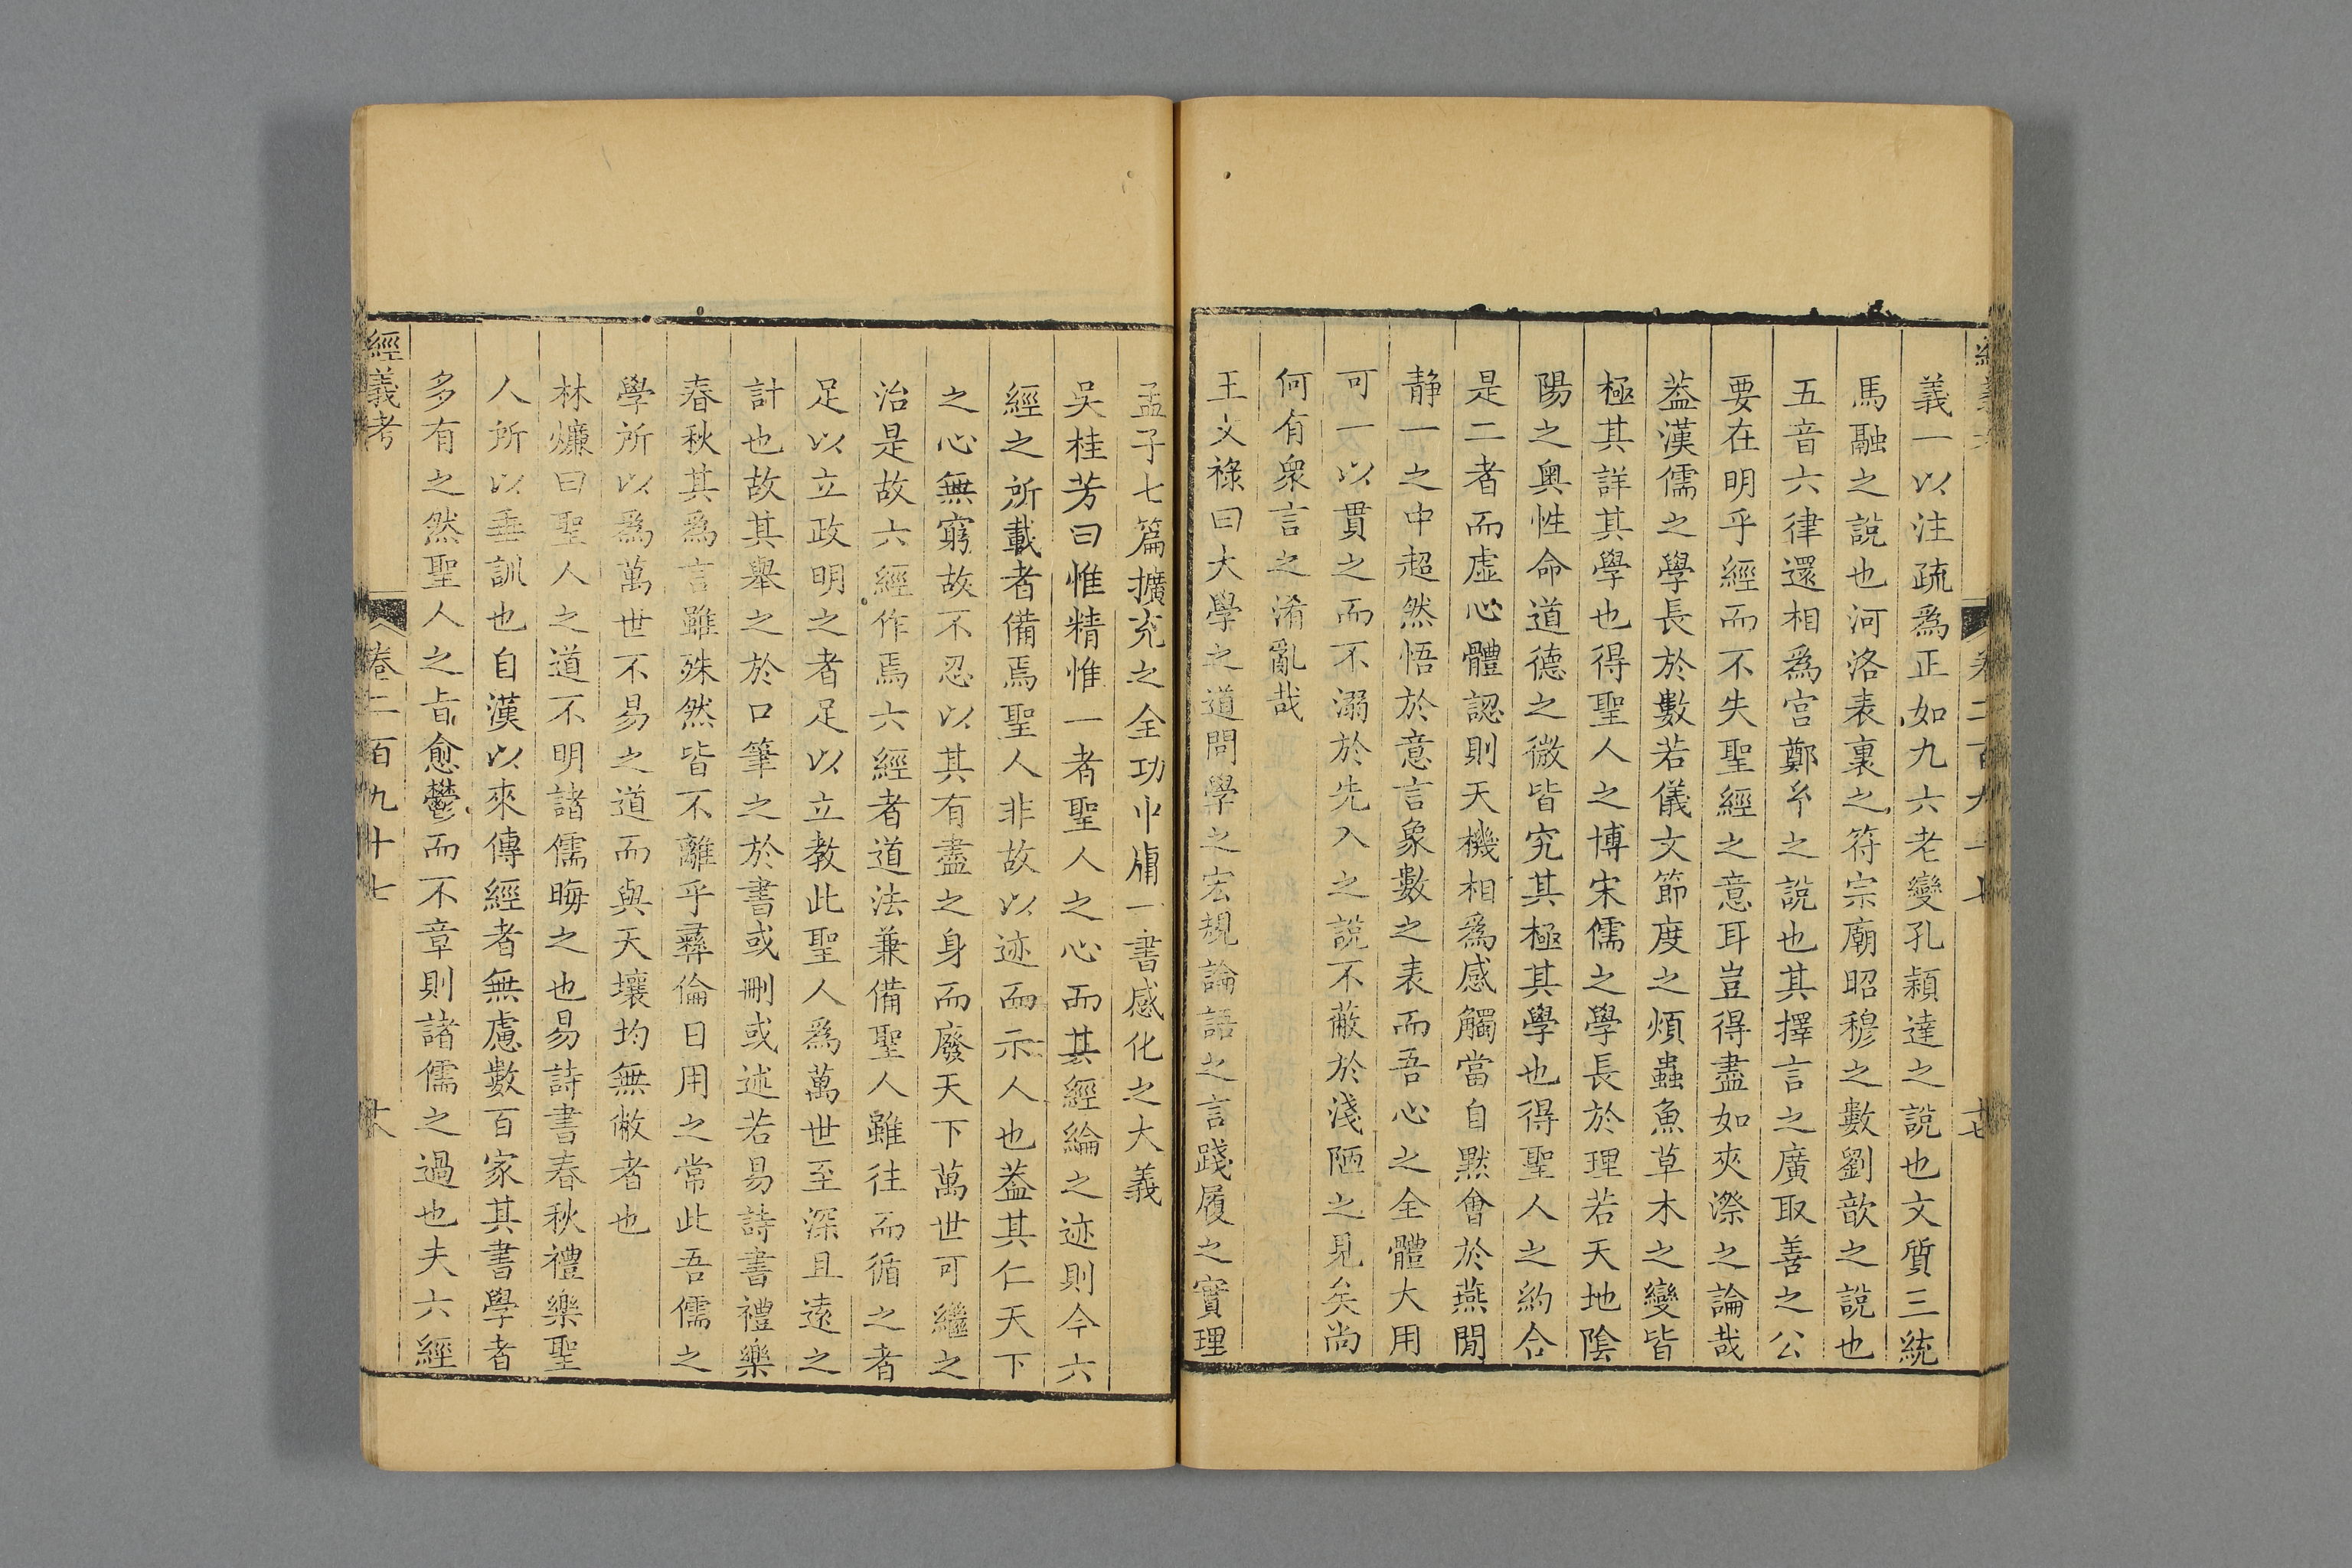 義一以注疏爲正如九六老變孔穎達之說也文質三統
馬融之說也河洛表裏之符宗廟昭穆之數劉歆之說也
五音六律還相爲宮鄭𤣥之說也其擇言之廣取善之公
要在明乎經而不失聖經之意耳豈得盡如夾漈之論哉
葢漢儒之學長於數若儀文節度之煩蟲魚草木之變皆
極其詳其學也得聖人之博宋儒之學長於理若天地陰
陽之奧性命道德之微皆究其極其學也得聖人之約合
是二者而虛心體認則天機相爲感觸當自默會於燕閒
靜一之中超然悟於意言象數之表而吾心之全體大用
可一以貫之而不溺於先入之說不蔽於淺陋之見矣尚
何有衆言之淆亂哉
王文祿曰大學之道問學之宏規論語之言踐履之實理
孟子七篇擴充之全功中庸一書感化之大義
吳桂芳曰惟精惟一者聖人之心而其經綸之迹則今六
經之所載者備焉聖人非故以迹而示人也葢其仁天下
之心無窮故不忍以其有盡之身而廢天下萬世可繼之
治是故六經作焉六經者道法兼備聖人雖往而循之者
足以立政明之者足以立教此聖人爲萬世至深且遠之
計也故其舉之於口筆之於書或刪或述若易詩書禮樂
春秋其爲言雖殊然皆不離乎彞倫日用之常此吾儒之
學所以爲萬世不易之道而與天壤均無敝者也
林爌曰聖人之道不明諸儒晦之也易詩書春秋禮樂聖
人所以垂訓也自漢以來傳經者無慮數百家其書學者
多有之然聖人之旨愈鬱而不章則諸儒之過也夫六經
經義考
卷二百九十七
十八